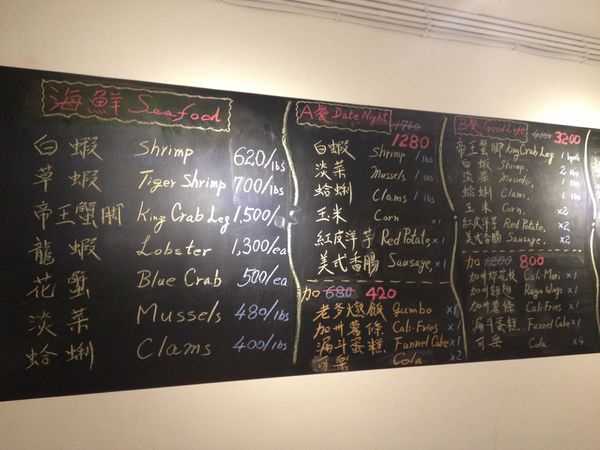 海鮮 Seafood
白蝦 Shrimp 620/lbs
草蝦 Tiger Shrimp 700/lbs
帝王蟹脚 King Crab Leg 1,500/
龍蝦 Lobster 1,300/ea
花蟹 Blue Crab 500/ea
淡菜 Mussels 480/lbs
蛤蜊 Clams 400/lbs
A餐 Date Night 1740
1280
白蝦 Shrimp 1 lbs
淡菜 Mussels 1 lbs
蛤蜊 Clams 1 lbs
玉米 Corn ×1
紅皮洋芋 Red Potato, ×1
美式香腸 Sausage, ×1
加 680 420
老爹燉飯 Gumbo ×1
加州薯條 Cali-Fries ×1
漏斗蛋糕 Funnel Cake ×1
可樂 Cola ×2
B餐 Good Life 3200
帝王蟹脚 King Crab Leg 1
白蝦 Shrimp, 2 lbs
淡菜 Mussels 1 lbs
蛤蜊 Clams, 1 lbs
玉米 Corn, ×2
紅皮洋芋 Red Potato, ×2
美式香腸 Sausage, ×2
加 1200 800
Cali-Mari ×1
Wings ×1
加州薯條 Cali-Fries ×1
漏斗蛋糕 Funnel Cake ×1
可樂 Cola ×4